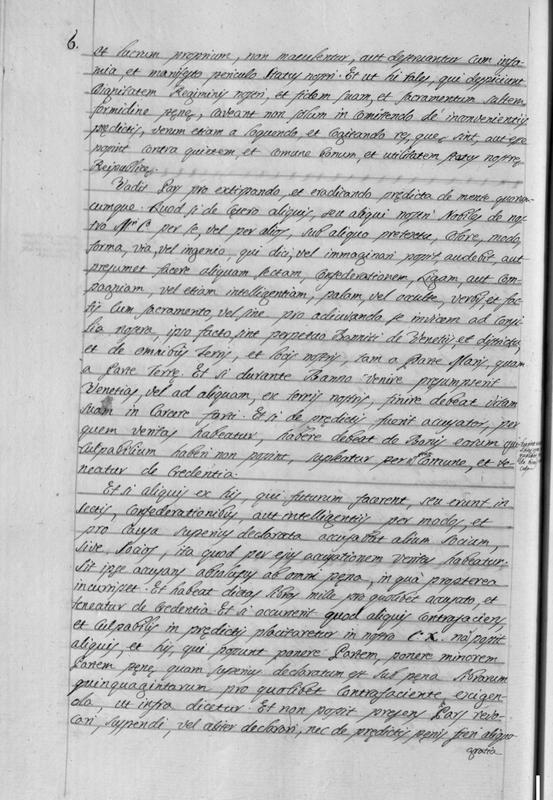 6.
et lucrum proprium, non maculentur, aut depraventur cum infa-
mia, et manifesto periculo Status nostri. Et ut hi tales, qui despiciunt
Dignitatem Regiminis nostri, et fidem suam, et sacramentum saltem
formidine penę, caveant non solum in comittendo de inconvenientijs
prędictis, verum etiam a loquendo, et cogitando res, quę sint, aut esse
possint contra quietem, et comune bonum, et utilitatem status nostrę
Reipublicę.
Vadit Pars pro extirpando, et eradicando prędicta de mente quorum-
cumque. Quod si de cętero aliquis, seu aliqui nostri Nobiles de no-
stro Mri C. per se, vel per alios, sub aliquo pretextu, colore, modo,
forma, via, vel ingenio, qui dici, vel immaginari possit, audebit, aut
presumet facere aliquam sectam, confederationem, Ligam, aut com-
pagniam, vel etiam intelligentiam, palam, vel occulte, verbis, et fac-
tis cum sacramento, vel sine pro adiuvando se invicem ad Consi-
lia nostra, ipso facto, sint perpetuo Banniti de Venetijs, et districtu,
et de omnibus terris, et locis nostris, tam a Parte Maris, quam
a Parte Terrę. Et si durante Banno venire presumpserit
Venetias, vel ad aliquam, ex terris nostris, finire debeat vitam
suam in Carcere forti. Et si de prędictis fuerit accusator, per
quem veritas habeatur, habere debeat de Bonis eorum qui
culpabilium haberi non possint, supleatur per Comune, et te-
neatur de Credentia.
Et si aliquis ex his, qui futurum facerent, seu erunt in
sectis, confederationibus, aut intelligentijs per modos, et
pro causa superius declarata accusabit alium socium,
sive socios, ita quod per ejus accusationem veritas habeatur.
Sit ipse accusans absolutus ab omni pęna, in qua propterea
incurrisset. Et habeat dictas libras mille pro quolibet accusato, et
teneatur de Credentia. Et si occurrent quod aliquis contrafaciens,
et culpabilis in prędictis placitaretur in nostro C. X. nō possit
aliquis, et hij, qui possunt ponere Partem, ponere minorem
Partem pęnę, quam superius declaratum est sub pena librarum
quinquagintarum pro quolibet contrafaciente, exigen-
do, ut infra dicetur. Et non possit presens Pars revo-
cari, suspendi, vel aliter declarari, nec de prędictis pęnis fieri aliquo
gratia